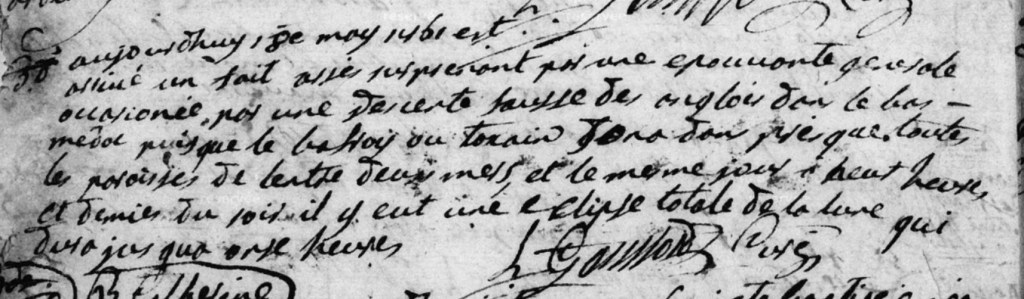 aujourdhuy 18e may 1761 est
arivé un fait assés surprenant par une epouvante generale
occasionée par une descente fausse des anglois dan le bas -
medoc puisque le bafroi ou toxain sona dan presque toutes
les paroisses de lentre deux mers, et le meme jour à heut heures
et demies du soir il y eut une eclipse totale de la lune qui
dura jusqua onse heures
Curé